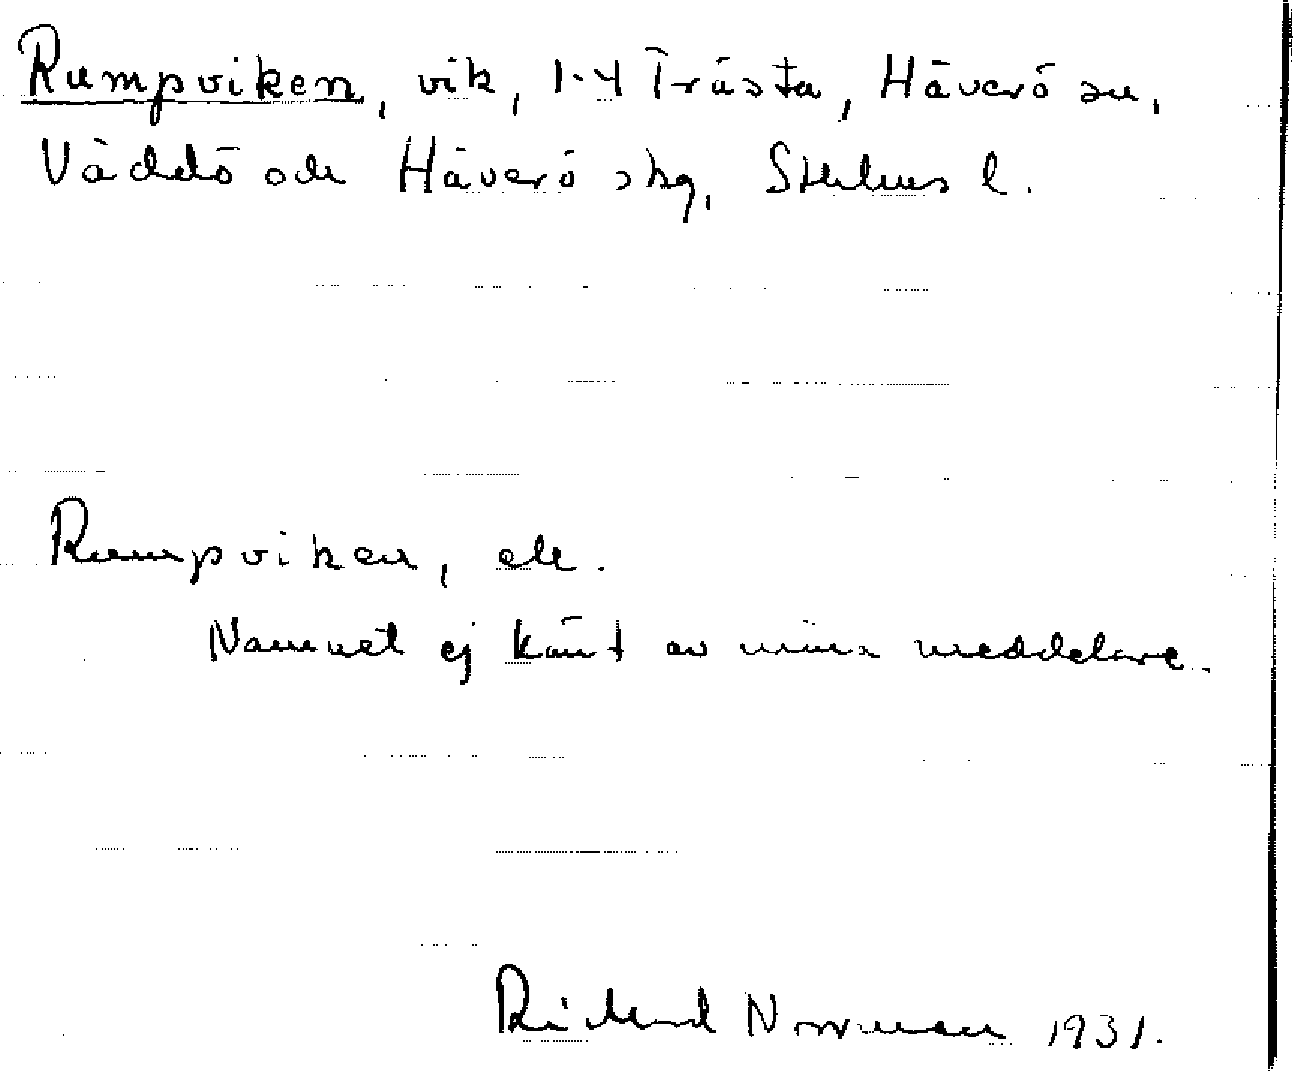 Rumpviken, vik, 1-4 Trästa, Häverö sn,
Väddö och Häverö skg, Sthlms l.
Rumpviken, ek.
Namnet ej känt av mina meddelare.
Rickard Norrman 1931.